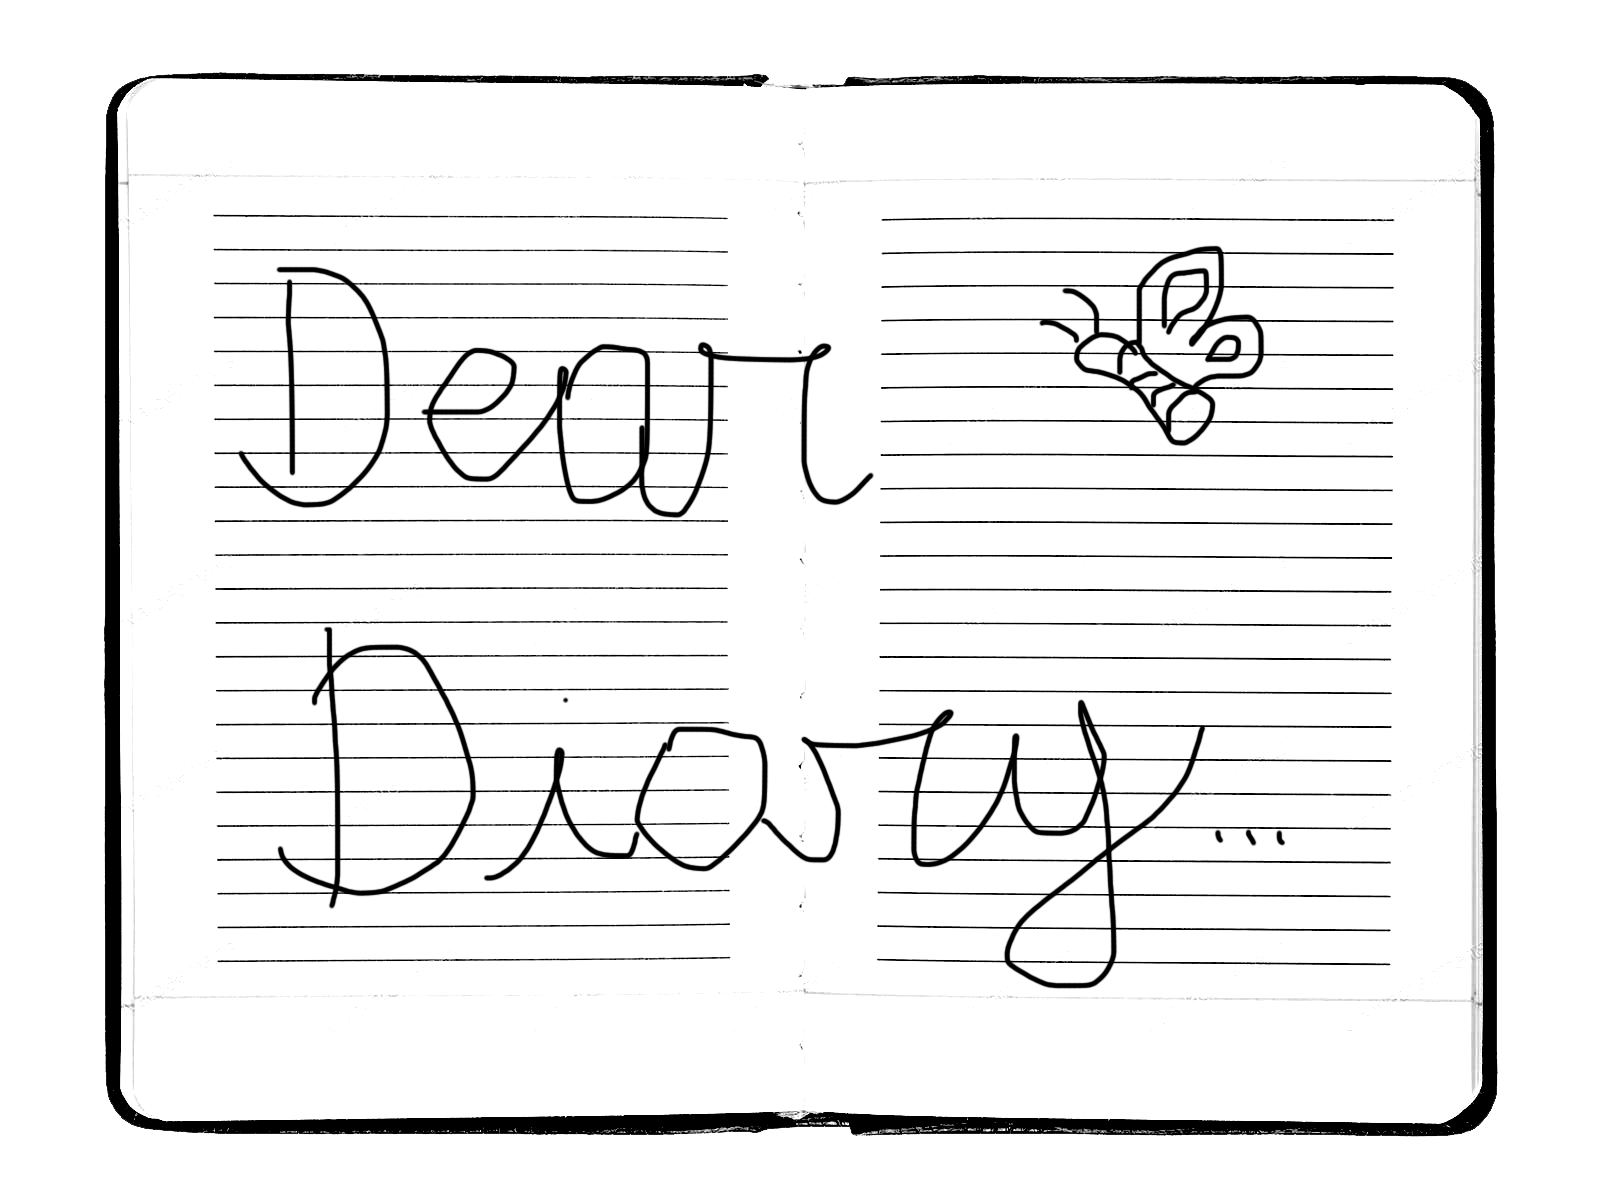 Dear
Diary...